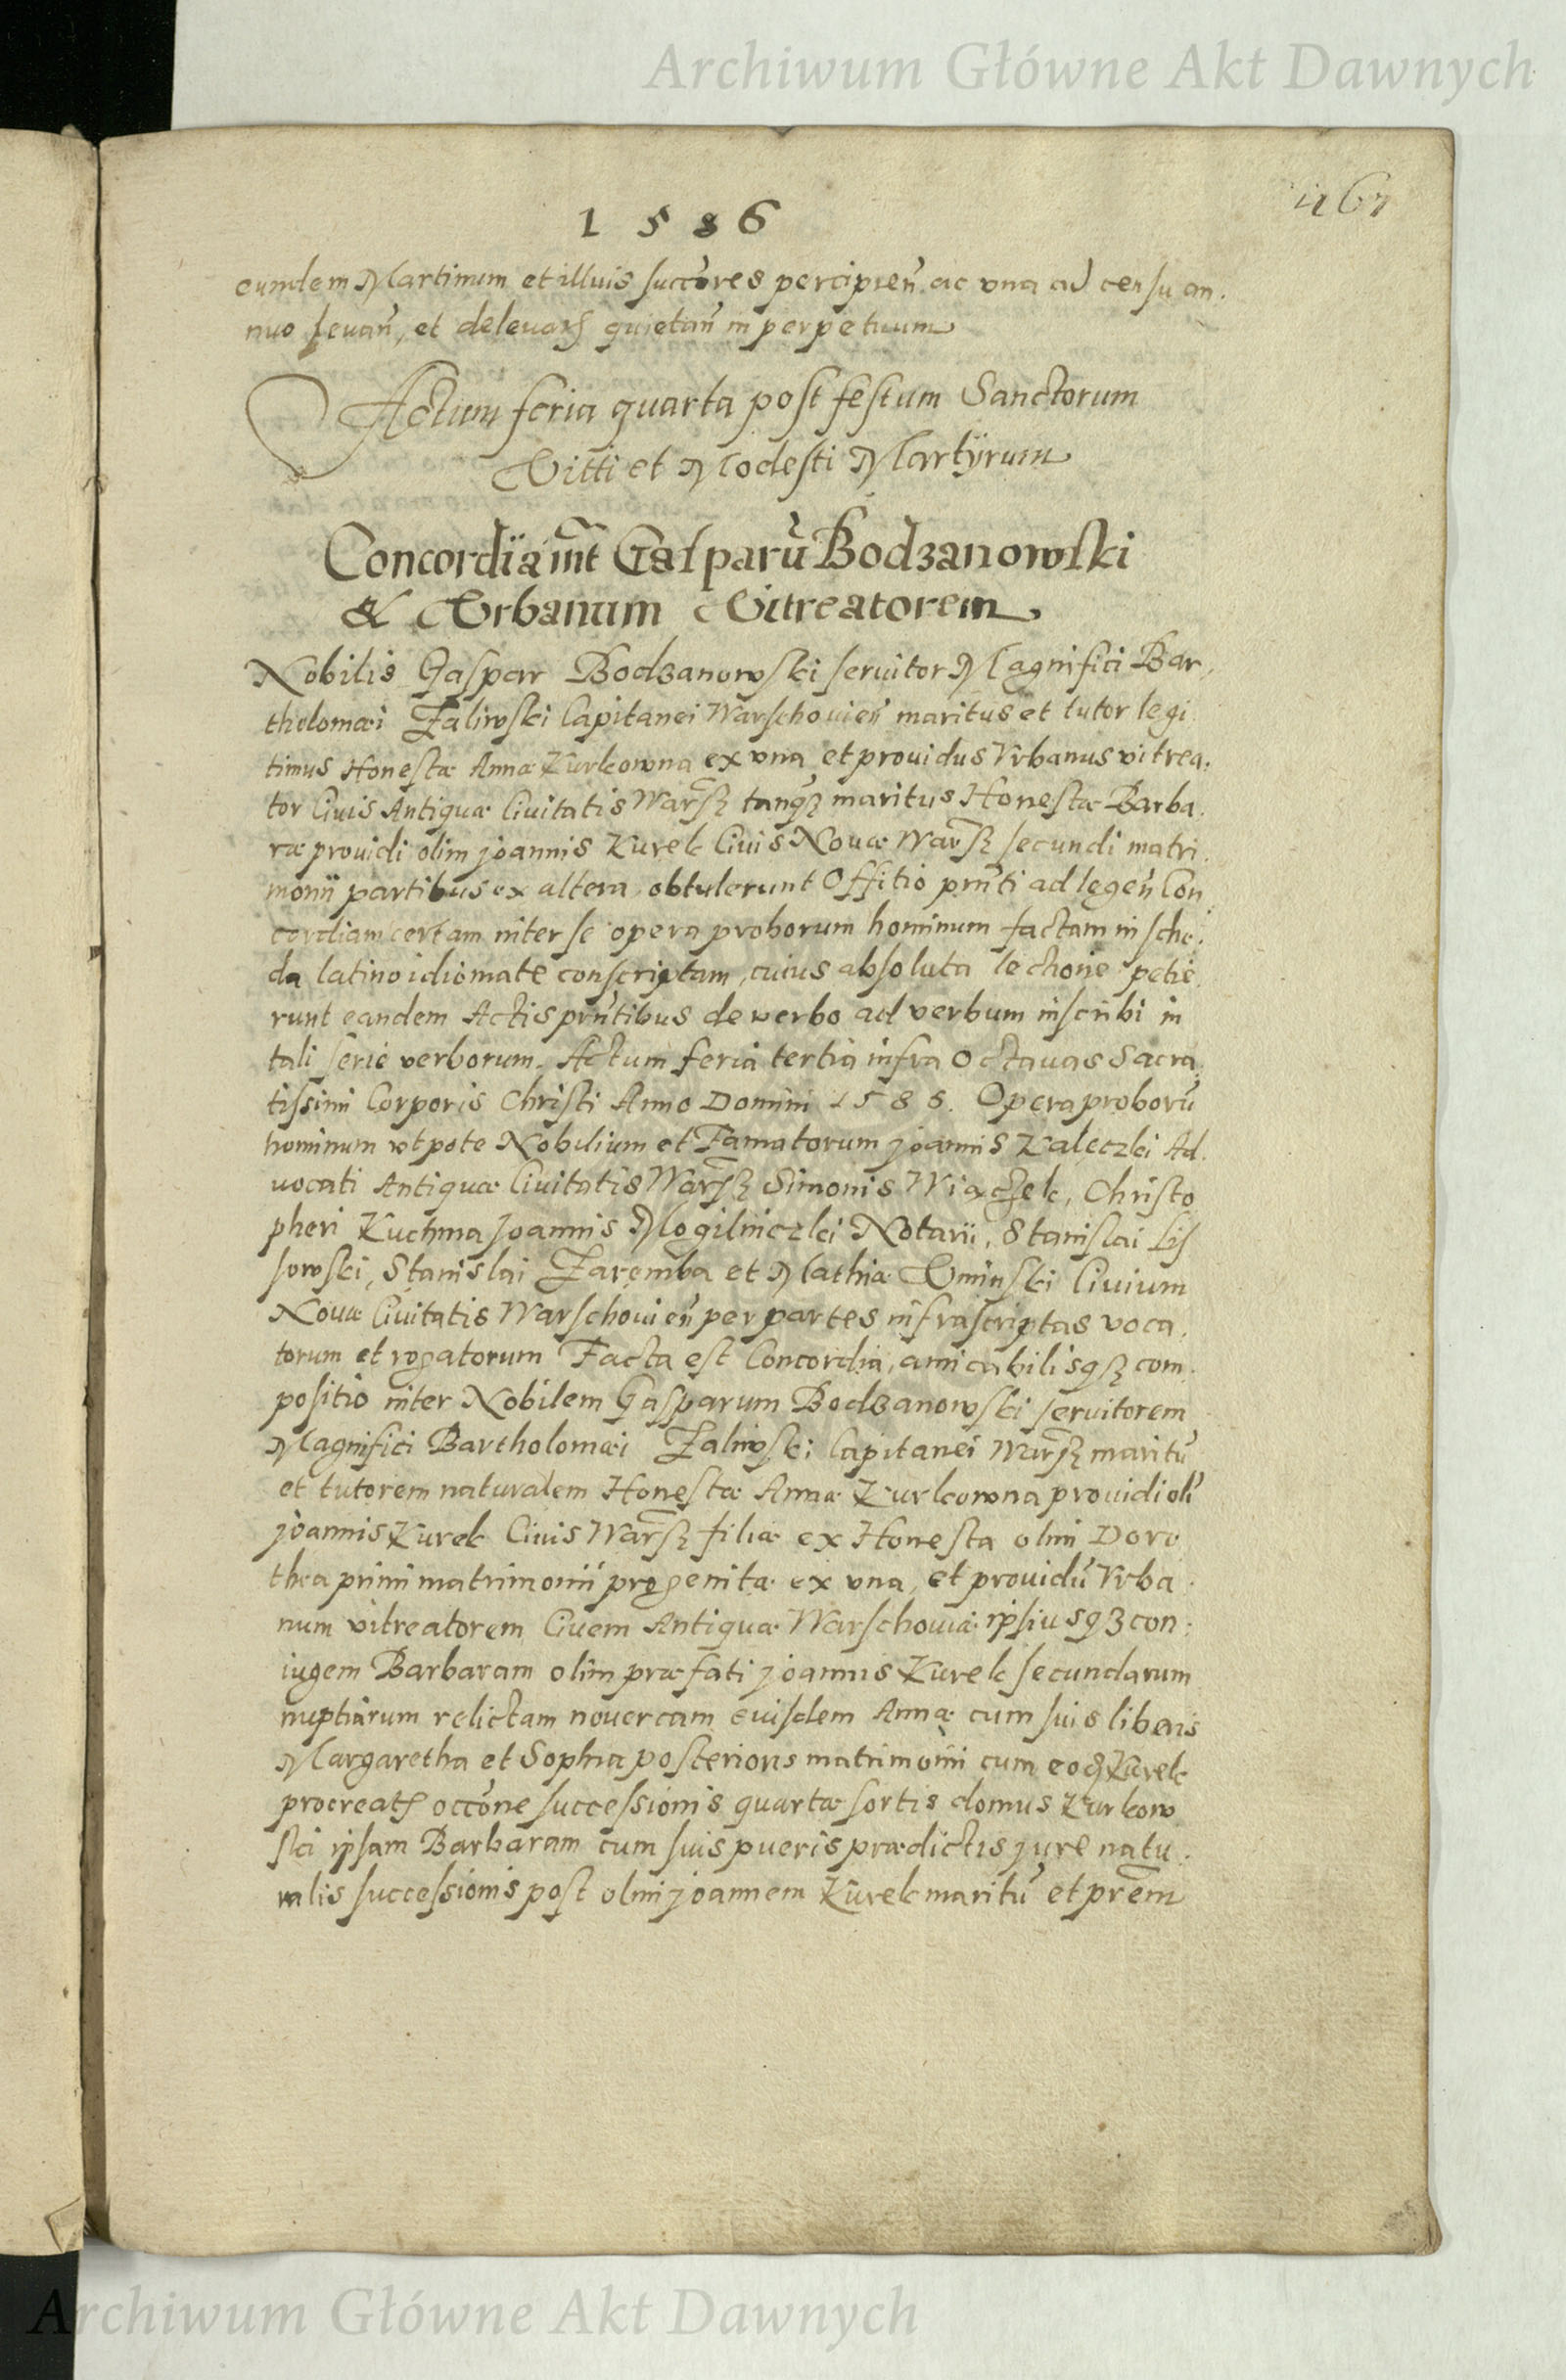 Archiwum Główne Akt Dawnych
1586
eundem Martinum et illius succ̃ores percipieñ. ac una ad censu an.
nuo levañ, et quietañ in perpetuum
Actum feria quarta post festum Sanctorum
Vitti et Modesti Martÿrum
Concordÿa int̃ Gasparũ Bodzanowski
& Vrbanum Vitreatorem
Nobilis Gaspar Bodzanowski servitor Magnifici Bar,
tholomæi Zaliwski Capitanei Warschovieñ maritus et tutor legi
timus Honestæ Annæ Kurkowna ex vna et providus Vrbanus vitrea,
tor Civis Antiquæ Civitatis Warsz tanqz maritus Honestæ Barba.
ræ providi olim joannis Kurek Civis Novæ Warsz secundi matri.
monij partibus ex altera, obtulerunt Offitio prñti ad legeñ Con
cordiam certam inter se opera proborum hominum factam in sche.
da latino idiomate conscriptam, cuius absoluta lectione petie,
runt eandem Actis prñtibus de verbo ad verbum inscribi in
tali serie verborum. Actum feria tertia infra Octavas Sacra,
tissimi Corporis Christi Anno Domini 1586. Opera proborũ
hominum vtpote Nobilium et Famatorum joannis Zaleczki Ad.
vocati Antiquæ Civitatis Warsz Simonis Christo
pheri Kuchma Joannis Mogilniczki Notarii, Stanislai Lis
sowski, Stanislai Zaremba et Mathiæ Vminski Civium
Novæ Civitatis Warschovieñ per partes infrascriptas voca,
torum et rogatorum Facta est Concordia, amicabilisqz com.
positio inter Nobilem Gasparum Bodzanowski servitorem
Magnifici Bartholomæi Zaliwski Capitanei Warsz maritũ
et tutorem naturalem Honestæ Annæ Kurkowna providi olĩ
joannis Kurek Civis Warsz filiæ ex Honesta olim Doro
thea primi matrimonii progenitæ ex vna, et providũ Vrba.
num vitreatorem Civem Antiquæ Warschoviæ ipsiusqz con:
iugem Barbaram olim præfati joannis Kurek secundarum
nuptiarum relictam novercam eiusdem Annæ cum suis liberis
Margaretha et Sophia posterioris matrimonii cum Kurek
procreat occõne successionis quartæ sortis domus Kurkow
ski ipsam Barbaram cum suis pueris prædictis jure natu.
ralis successionis post olim joannem Kurek maritũ et prẽm
Archiwum Główne Akt Dawnych